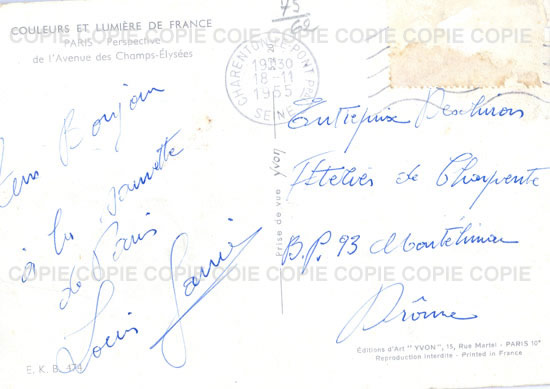 COULEURS ET LUMIÈRE DE FRANCE
PARIS - Perspective
de l'Avenue des Champs-Élysées
75
CHARENTON-LE-PONT PPAL
19H30
18-11
1955
SEINE
Bonjour
à la
de Paris
Louis
E. K. B. 474
Prise de vue Yvon
Entreprise
Atelier de Charpente
B.P. 93 Montélimar
Drôme
Éditions d'Art "YVON", 15, Rue Martel - PARIS 10e
Reproduction interdite - Printed in France
COPIE COPIE COPIE COPIE COPIE COPIE COPIE COPIE